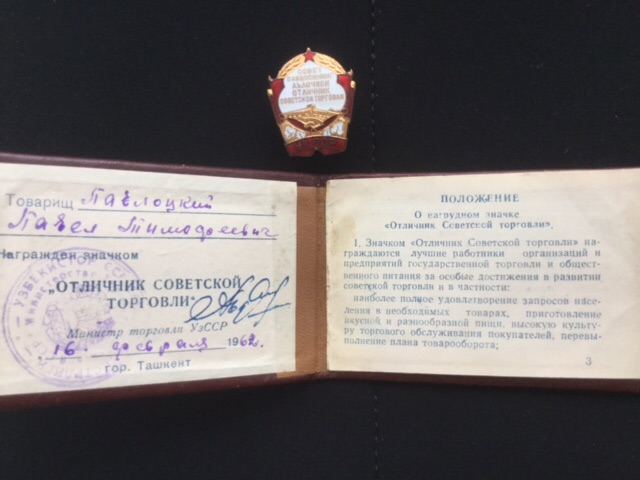 СОВЕТ
САВДОСИНИНГ
АЪЛОЧИСИ
ОТЛИЧНИК
СОВЕТСКОЙ ТОРГОВЛИ
Товарищ Павлоцкий
Павел Тимофеевич
Награжден значком
"ОТЛИЧНИК СОВЕТСКОЙ
ТОРГОВЛИ"
Министр торговли УзССР
"16" февраля 1962 г.
гор. Ташкент
УЗБЕКСКОЙ ССР
ПОЛОЖЕНИЕ
О нагрудном значке
«Отличник Советской торговли».
1. Значком «Отличник Советской торговли» на-
граждаются лучшие работники организаций и
предприятий государственной торговли и общест-
венного питания за особые достижения в развитии
советской торговли и в частности:
наиболее полное удовлетворение запросов насе-
ления в необходимых товарах, приготовление
вкусной и разнообразной пищи, высокую культу-
ру торгового обслуживания покупателей, перевы-
полнение плана товарооборота;
3